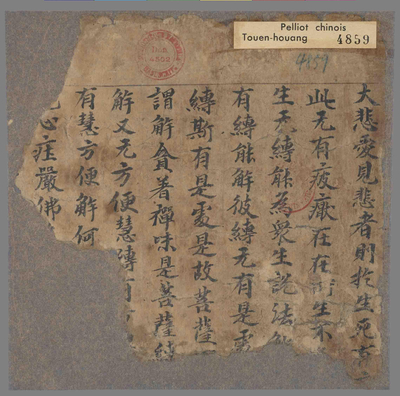 Pelliot chinois
Touen-houang 4859
4859
大悲愛見悲者則於生死有
此无有疲厭在在所生不
生无縛能為衆生說法解
有縛能解彼縛无有是處
縛斯有是處是故菩薩
謂解貪著禪味是菩薩縛
解又无方便慧縛有方
有慧方便解何
心莊嚴佛